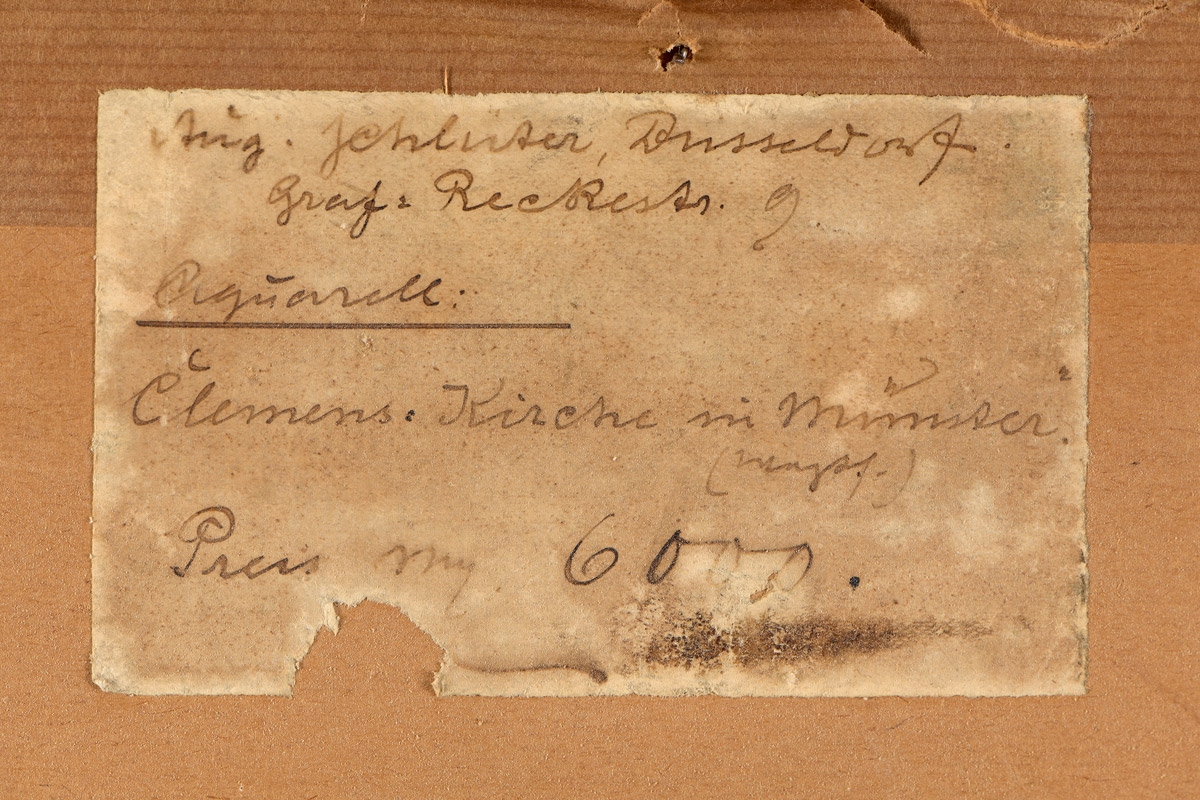 Aug. Schlüter, Düsseldorf.
Graf=Reckestr. 9
Aquarell:
Clemens=Kirche in Münster.
(Westf.)
Preis Mk 6000.